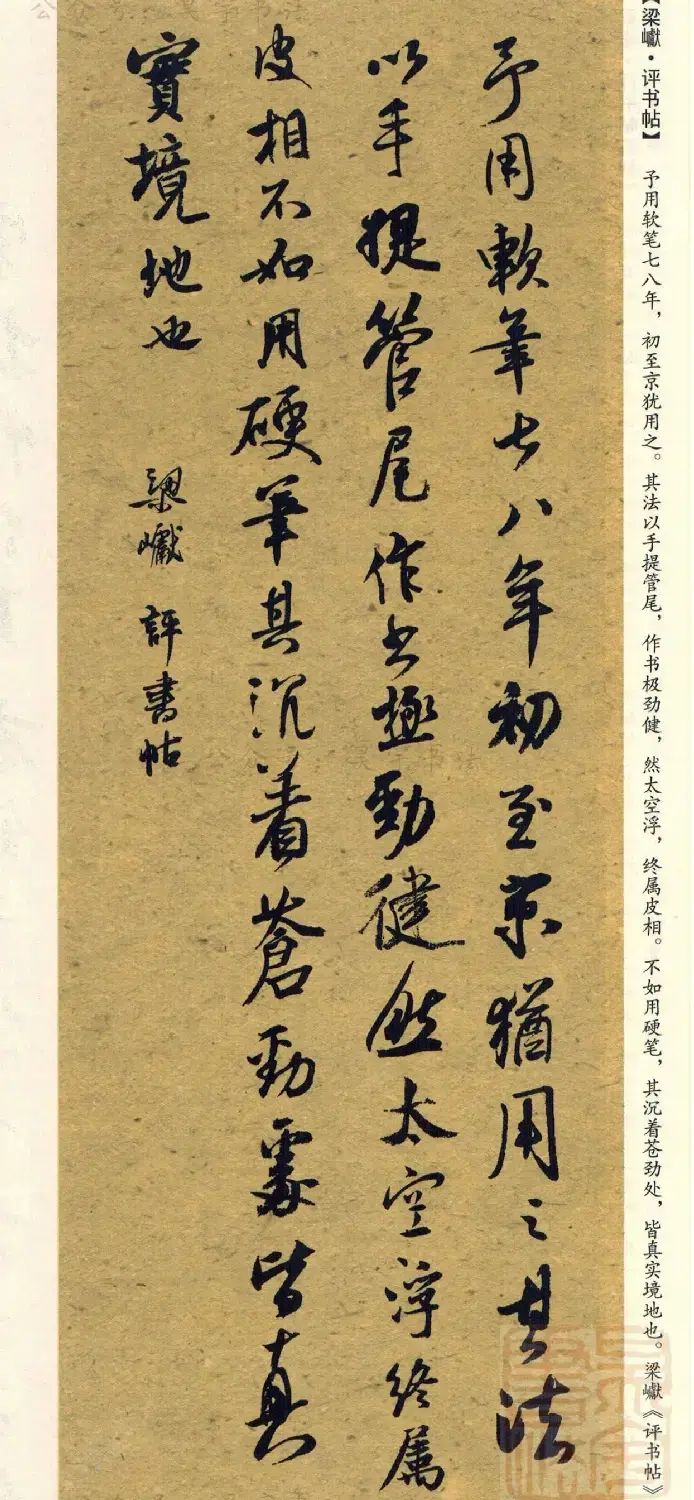 【梁巘·评书帖】
予用软笔七八年，初至京犹用之。其法以手提管尾，作书极劲健，然太空浮，终属皮相。不如用硬笔，其沉着苍劲处，皆真实境地也。梁巘《评书帖》
予用軟筆七八年初至京猶用之其法
以手提管尾作书極勁健然太空浮終属
皮相不如用硬筆其沉着蒼勁處皆真
實境地也
梁巘評書帖